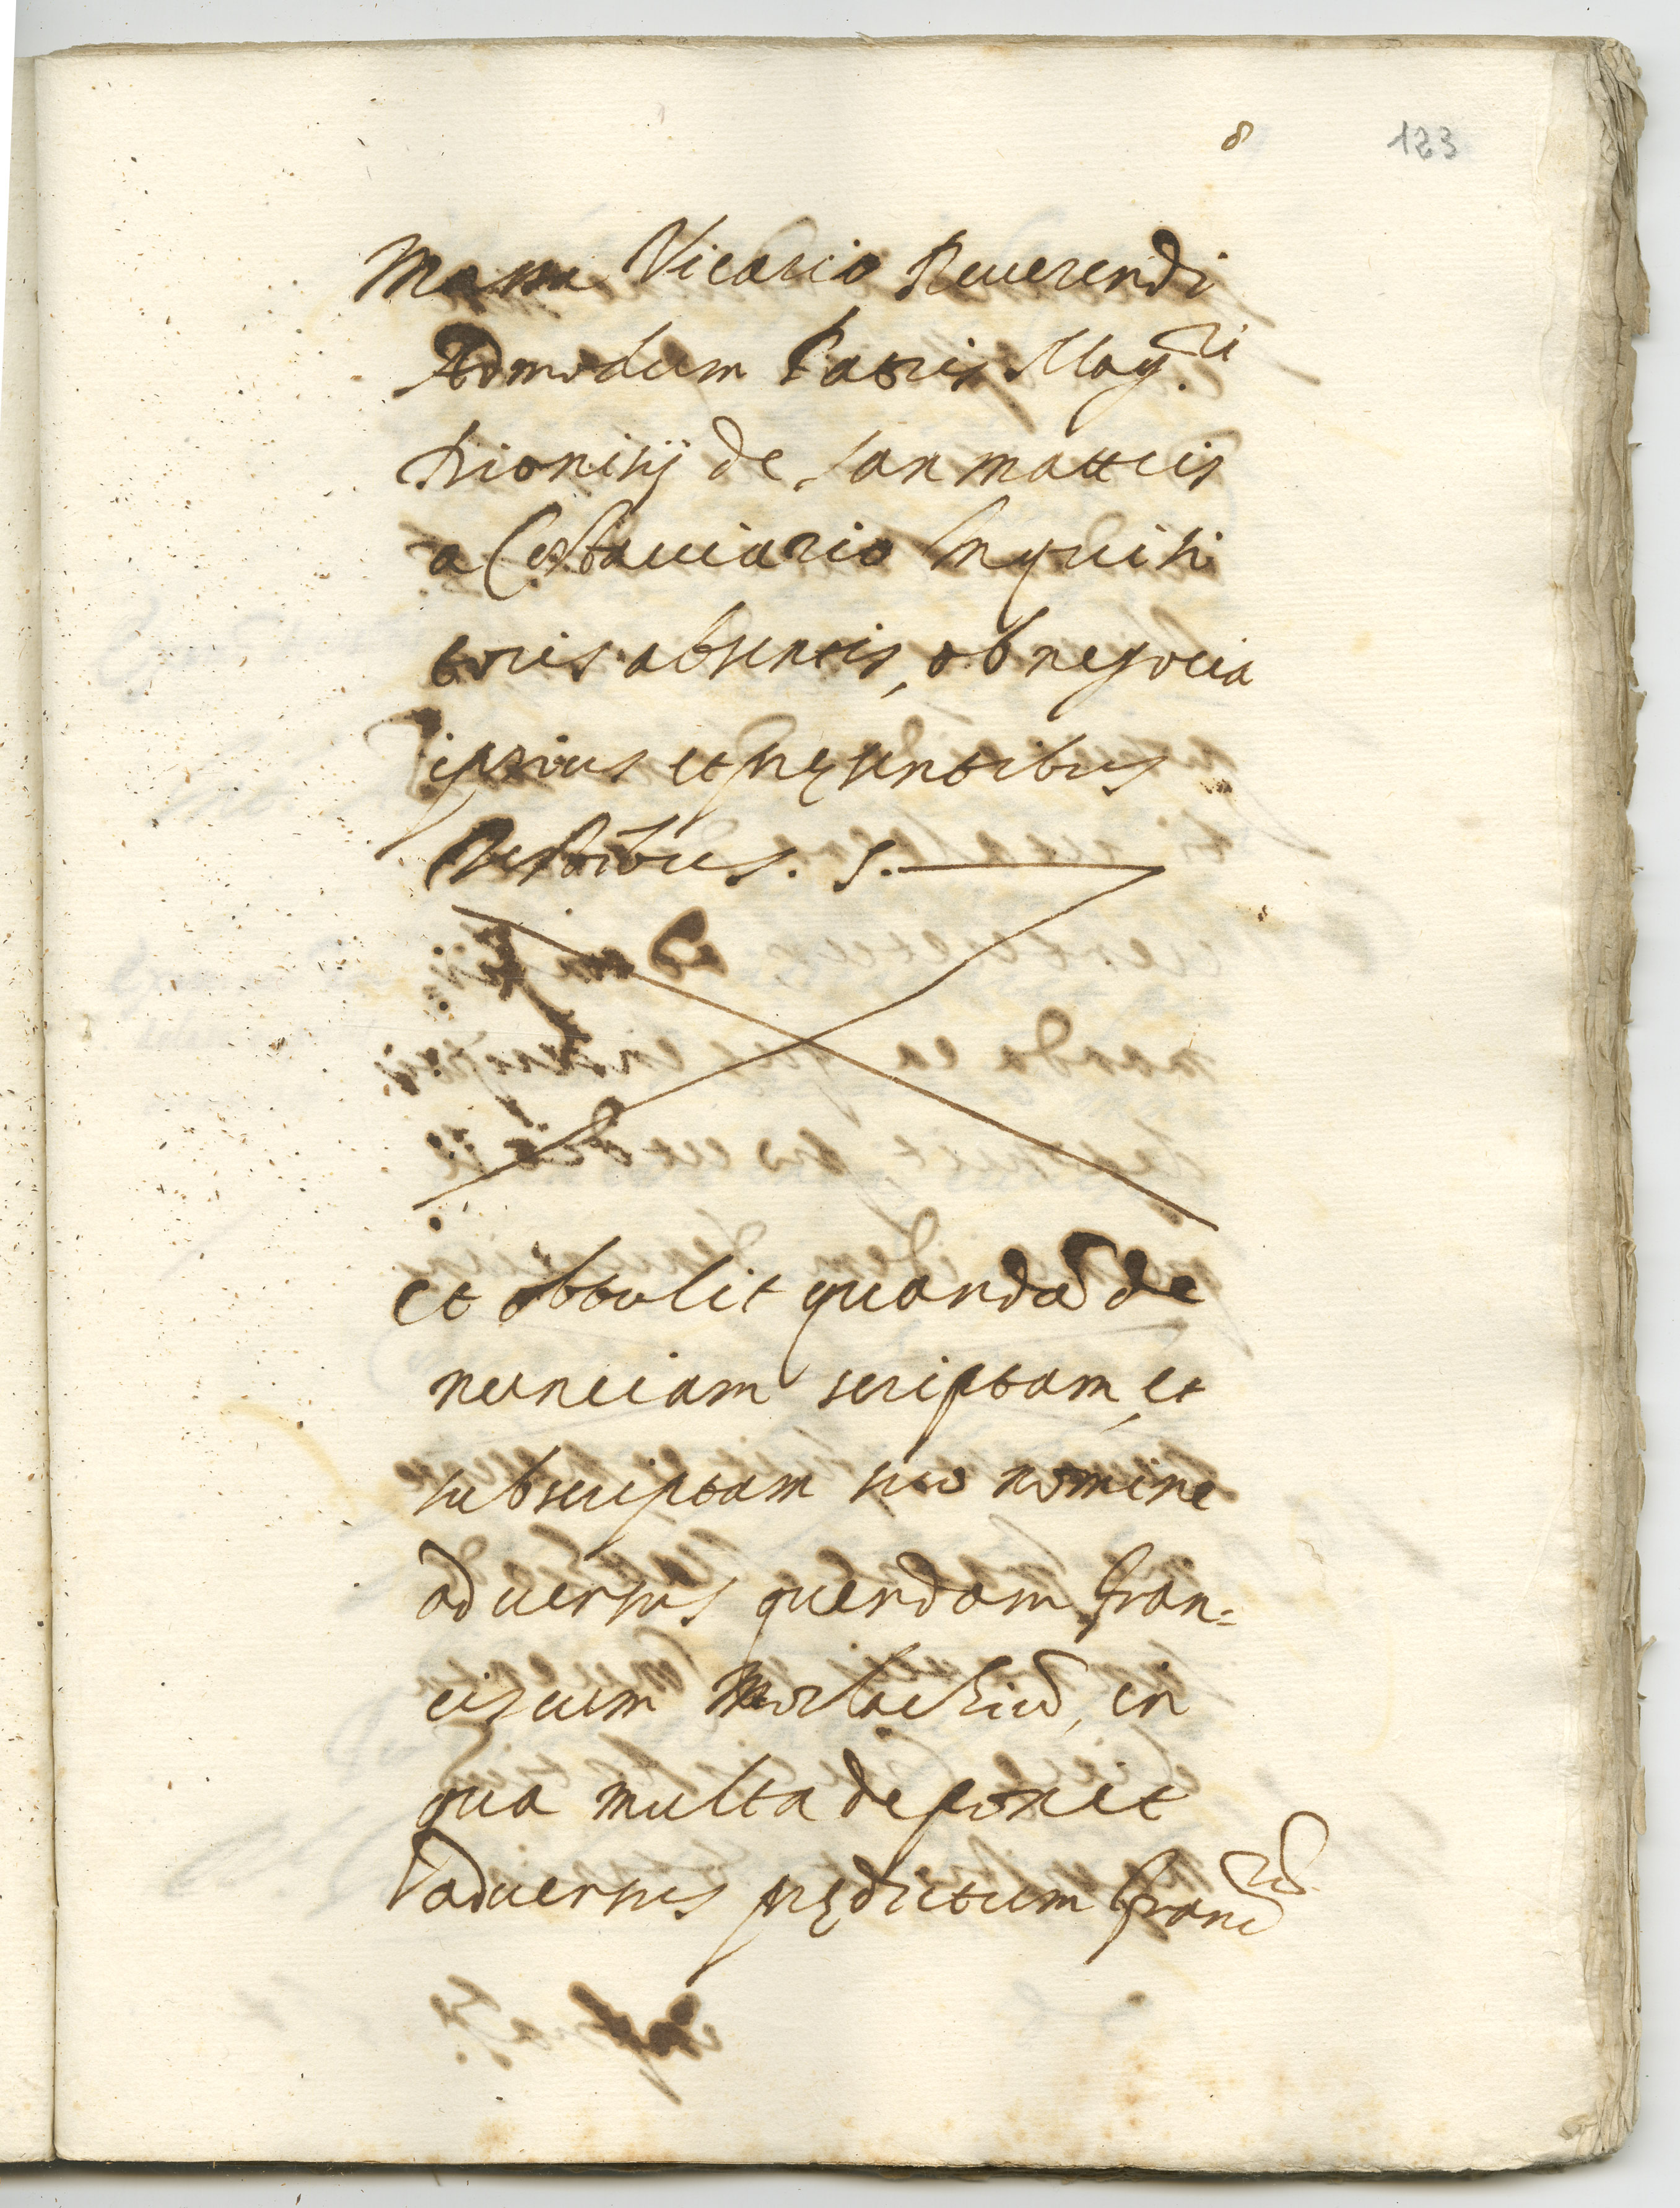 8 123
Mama Vicario Reuerendi
Admodum Patris Mag.ri
Dionisij de Sanmatteis
a Costacciario Inquisi
toris absentis, ob negocia
ipsius et pręsentibus
Testibus. s.
et obtulit quandā de
nunciam scriptam, et
subscriptam suo nomine
aduersus quendam fran=
ciscum Morlachiū, in
qua multa deponit
aduersus prędictum franc.cū